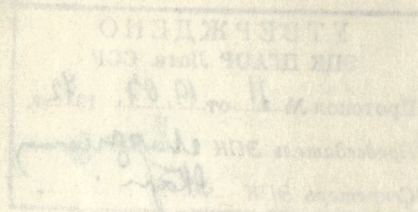 УТВЕРЖДЕНО
ЭПК ЦГАОР Лит. ССР
Протокол № 11 от 19.03. 1972 г.
Председатель ЭПК
Секретарь ЭПК